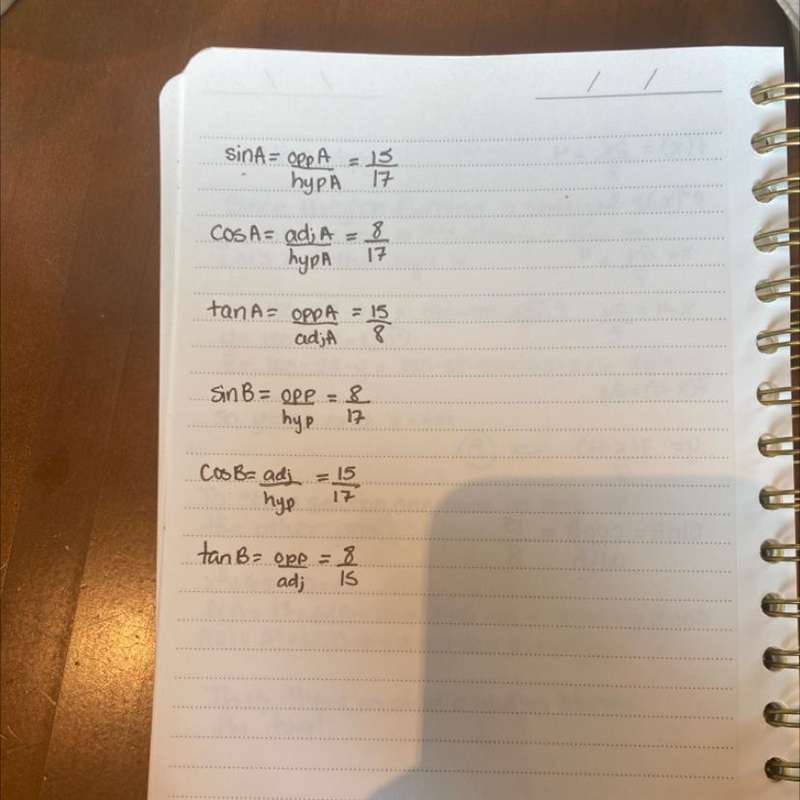 sinA = oppA/hypA = 15/17
cosA = adjA/hypA = 8/17
tanA = oppA/adjA = 15/8
sinB = opp/hyp = 8/17
cosB = adj/hyp = 15/17
tanB = opp/adj = 8/15